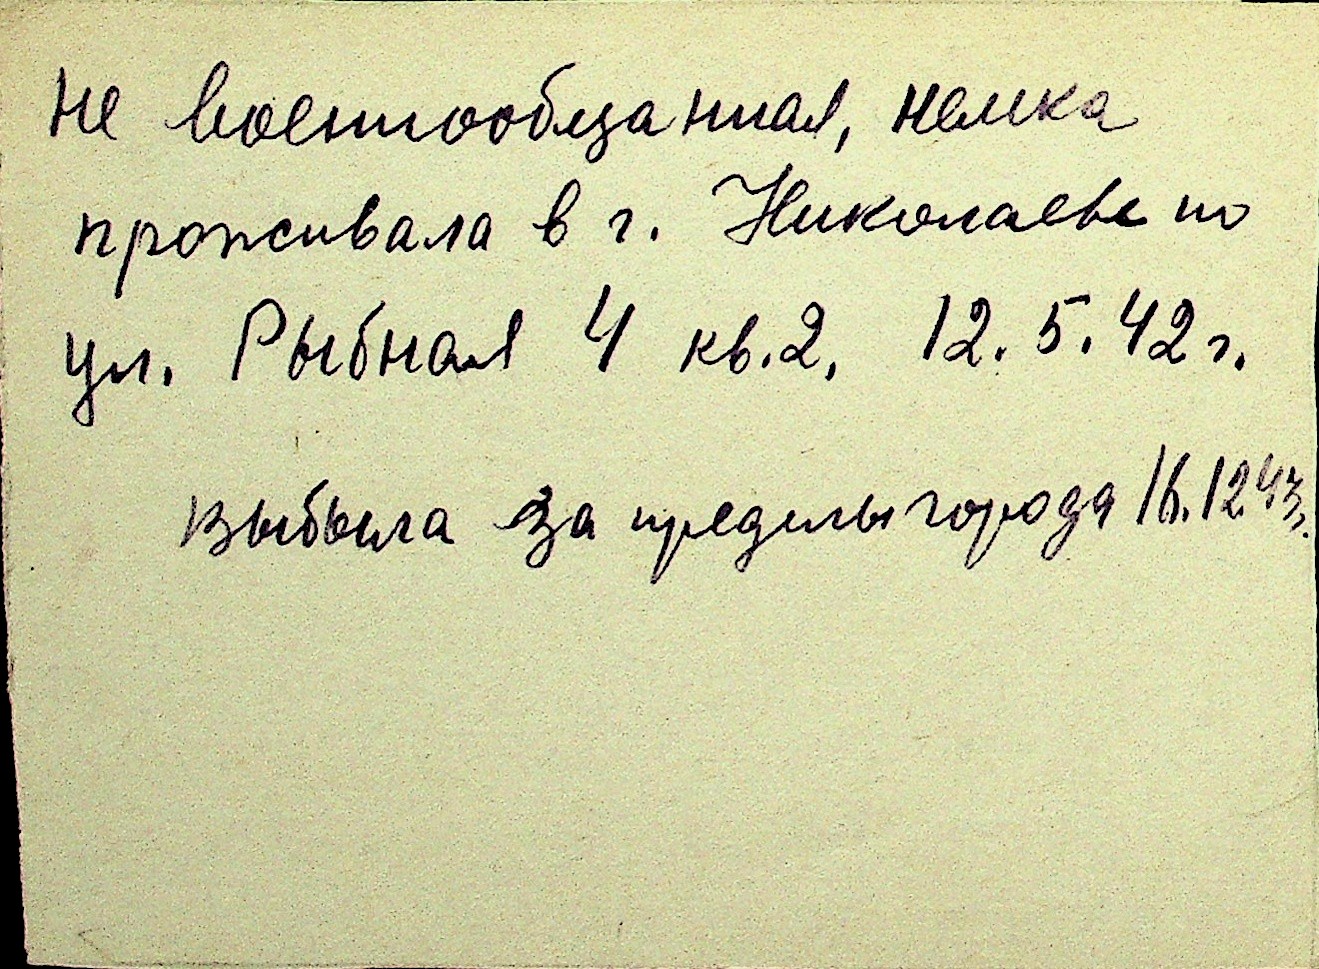 не военнообязанная, немка
проживала в г. Николаеве по
ул. Рыбная 4 кв.2. 12.5.42 г.
выбыла за пределы города 16.12 43г.